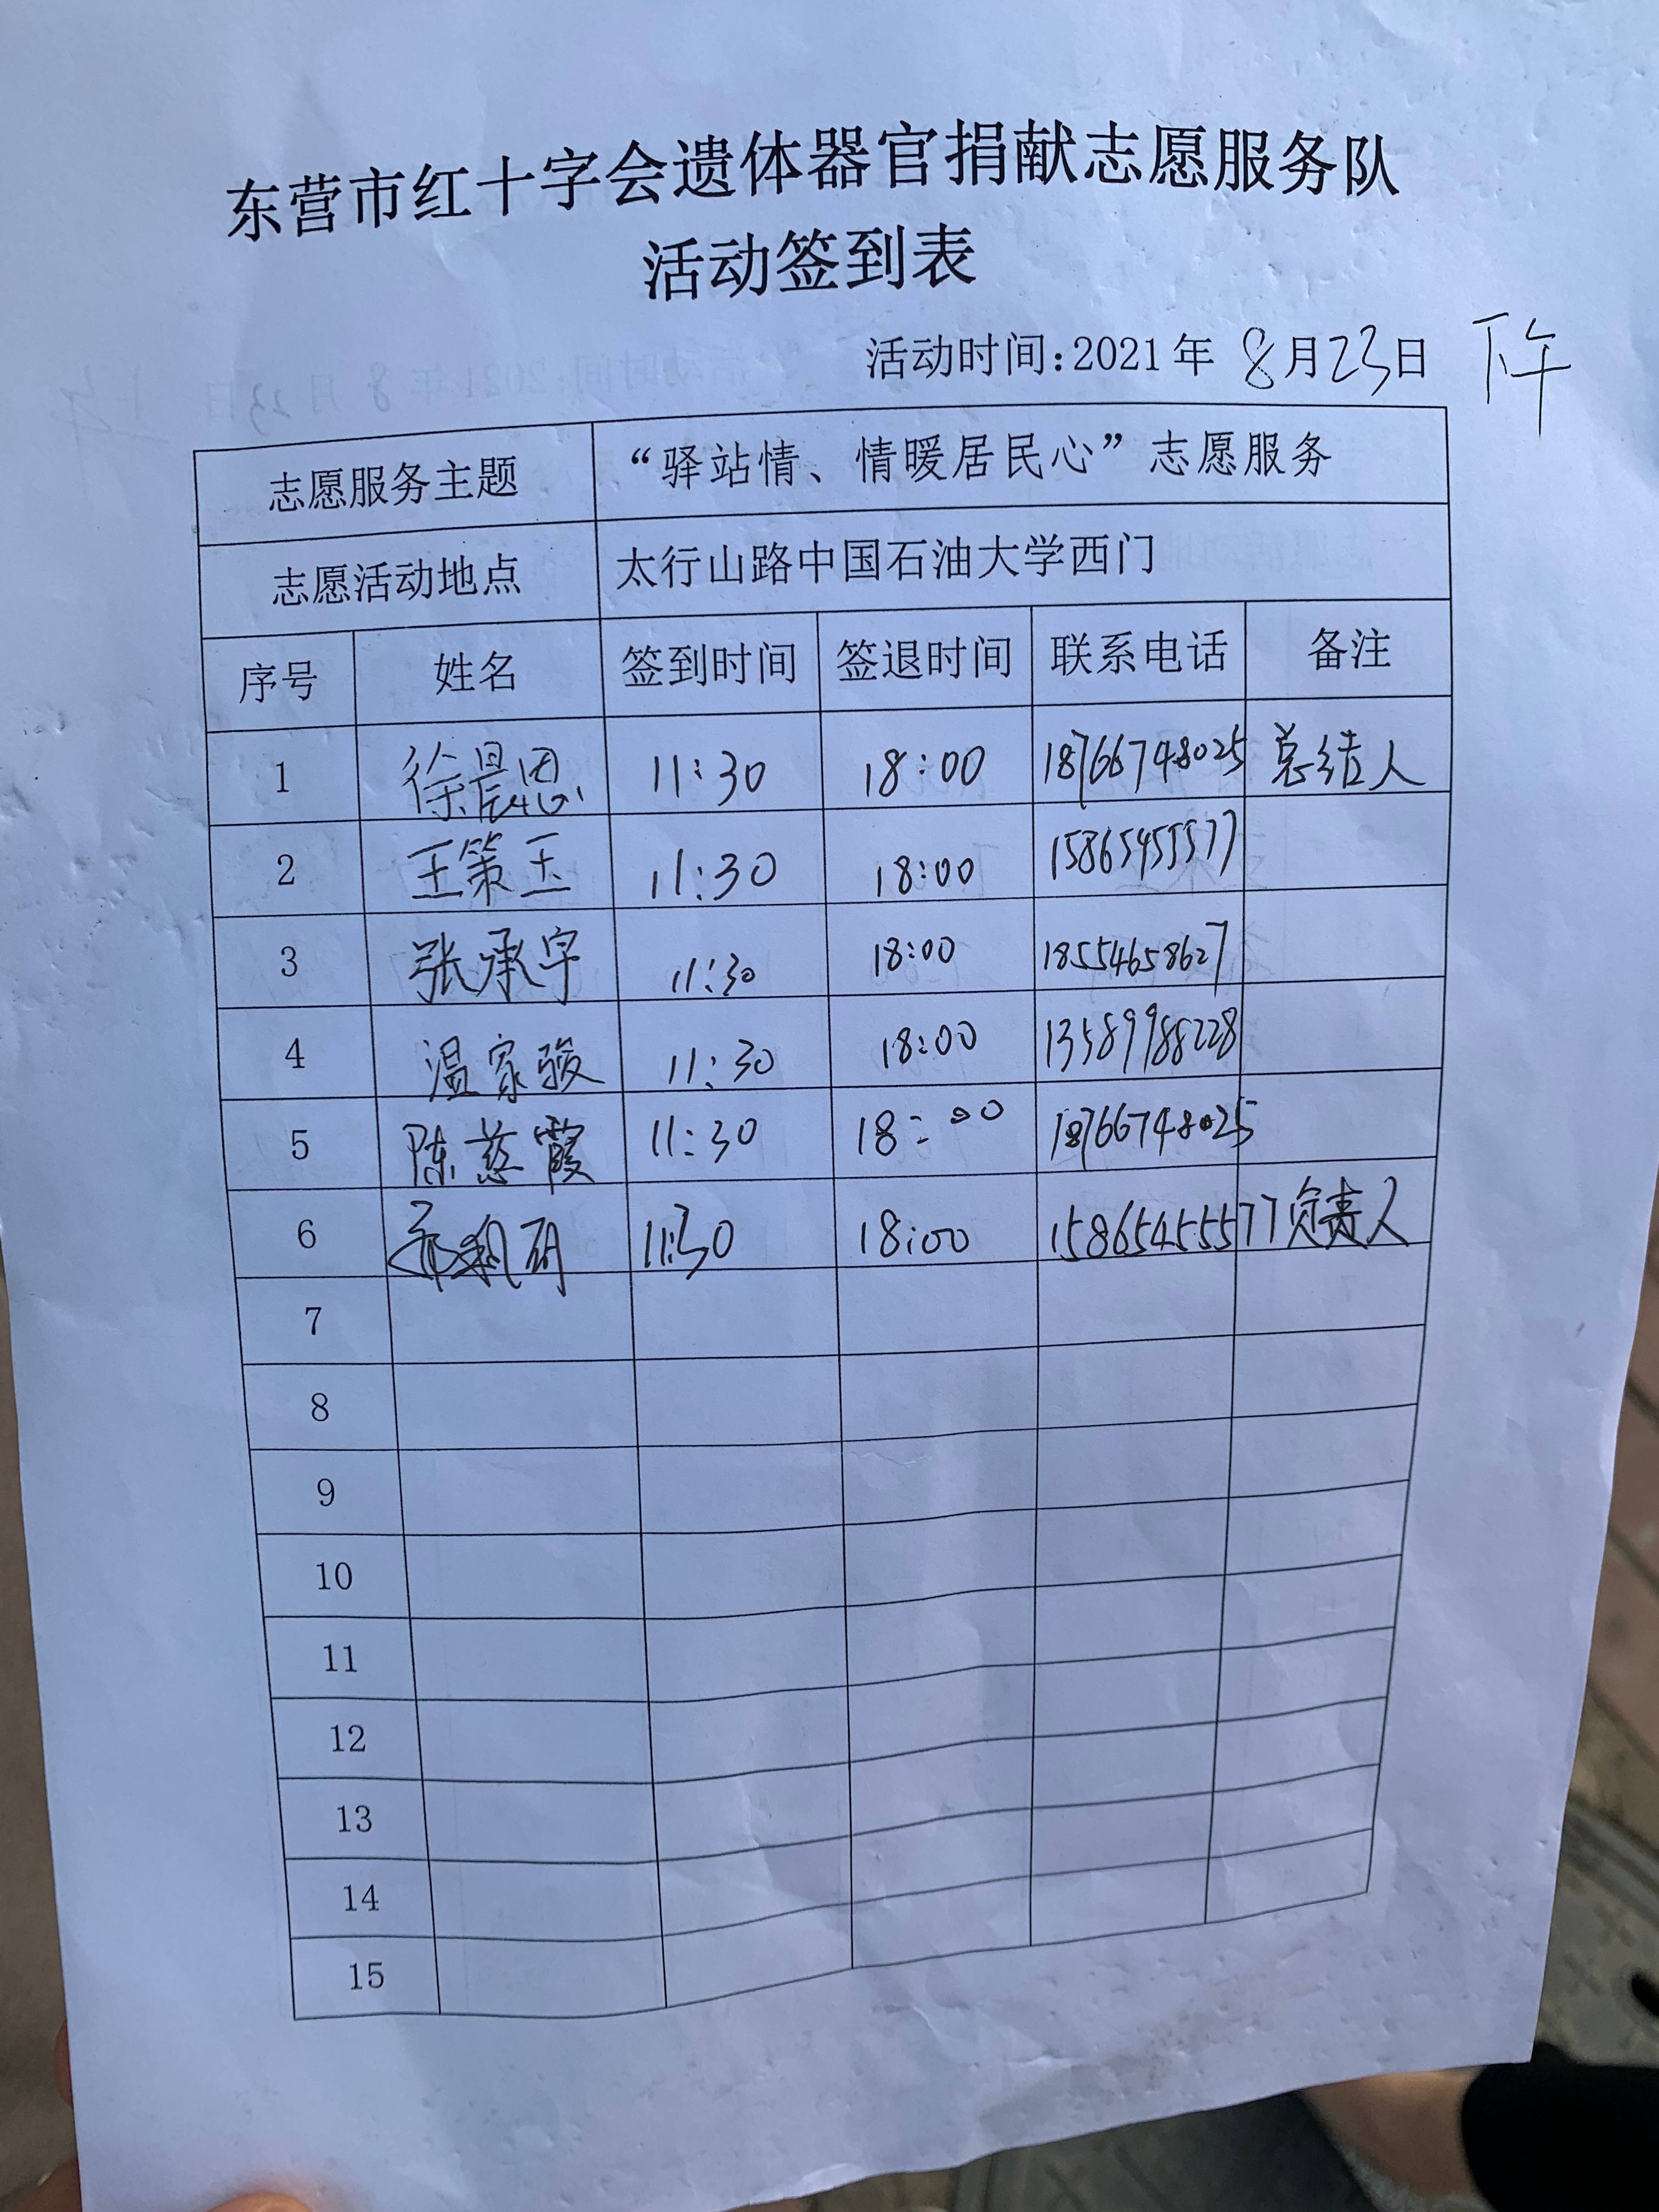 东营市红十字会遗体器官捐献志愿服务队
活动签到表
活动时间:2021年 8月23日 下午
志愿服务主题 “驿站情、情暖居民心”志愿服务
志愿活动地点 太行山路中国石油大学西门
序号 姓名 签到时间 签退时间 联系电话 备注
1 徐晨恩 11:30 18:00 18766748025 总结人
2 王策玉 11:30 18:00 15865455577
3 张承宇 11:30 18:00 18554658627
4 温家骏 11:30 18:00 13589988228
5 陈慈霞 11:30 18:00 18766748025
6 11:30 18:00 15865455577 负责人
7
8
9
10
11
12
13
14
15